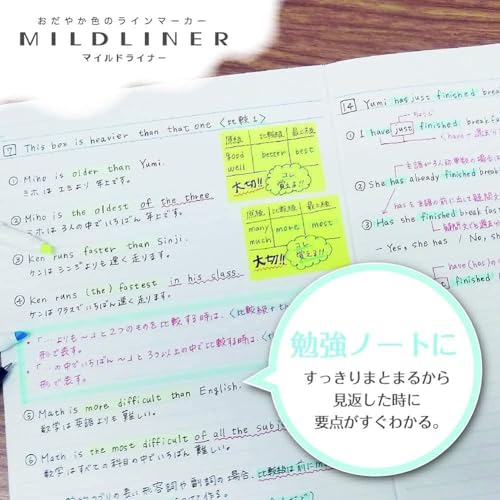 おだやか色のラインマーカー
MILDLINER
マイルドライナー
7 This box is heavier than that one 〈比較 1〉
① Miho is older than Yumi.
ミホはユミより年上です。
② Miho is the oldest of the three.
ミホは3人の中でいちばん年上です。
③ Ken runs faster than Sinji.
ケンはシンジよりも速く走ります。
④ Ken runs (the) fastest in his class.
ケンはクラスでいちばん速く走ります。
・「…よりも〜」と2つのものを比較する時は、〈比較級+th
形で表す。
・「…の中でいちばん〜」と3つ以上の中で比較する時は、
形で表す。
⑤ Math is more difficult than English.
数学は英語よりも難しい。
⑥ Math is the most difficult of all the subj
数学はすべての科目の中でいちばん難しい。
の長い形容詞や副詞の場合、比較級は前に mo
原級 比較級 最上級
good better best
well
大切!! コレ覚える!!
原級 比較級 最上級
many more most
much
大切!! コレ覚える!!
14 Yumi has just finished break
① I have just finished breakfa
② She has already finished break
③ Has she finished breakf
- Yes, she has / No, sh
have(has)
finished b
勉強ノートに
すっきりまとまるから
見返した時に
要点がすぐわかる。